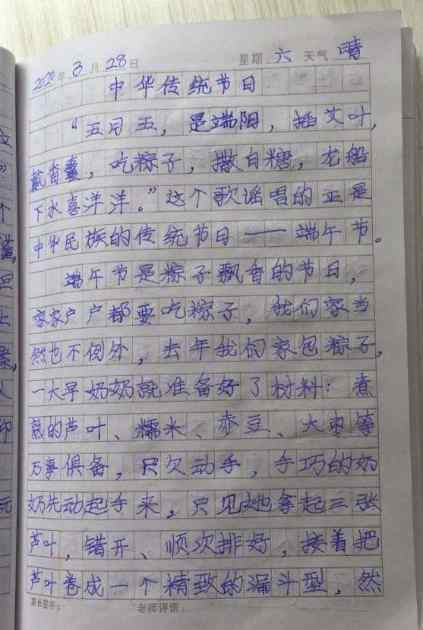 2020年3月28日 星期六 天气 晴
中华传统节日
“五月五，是端阳，插艾叶，
戴香囊，吃粽子，撒白糖，龙船
下水喜洋洋。”这个歌谣唱的正是
中华民族的传统节日——端午节。
端午节是粽子飘香的节日，
家家户户都要吃粽子，我们家当
然也不例外，去年我们家包粽子，
一大早奶奶就准备好了材料：煮
熟的芦叶、糯米、赤豆、大枣等
万事俱备，只欠动手，手巧的奶
奶先动起手来，只见她拿起三张
芦叶，错开、顺次排好，接着把
芦叶卷成一个精致的漏斗型，然
家长签字： 老师评语：